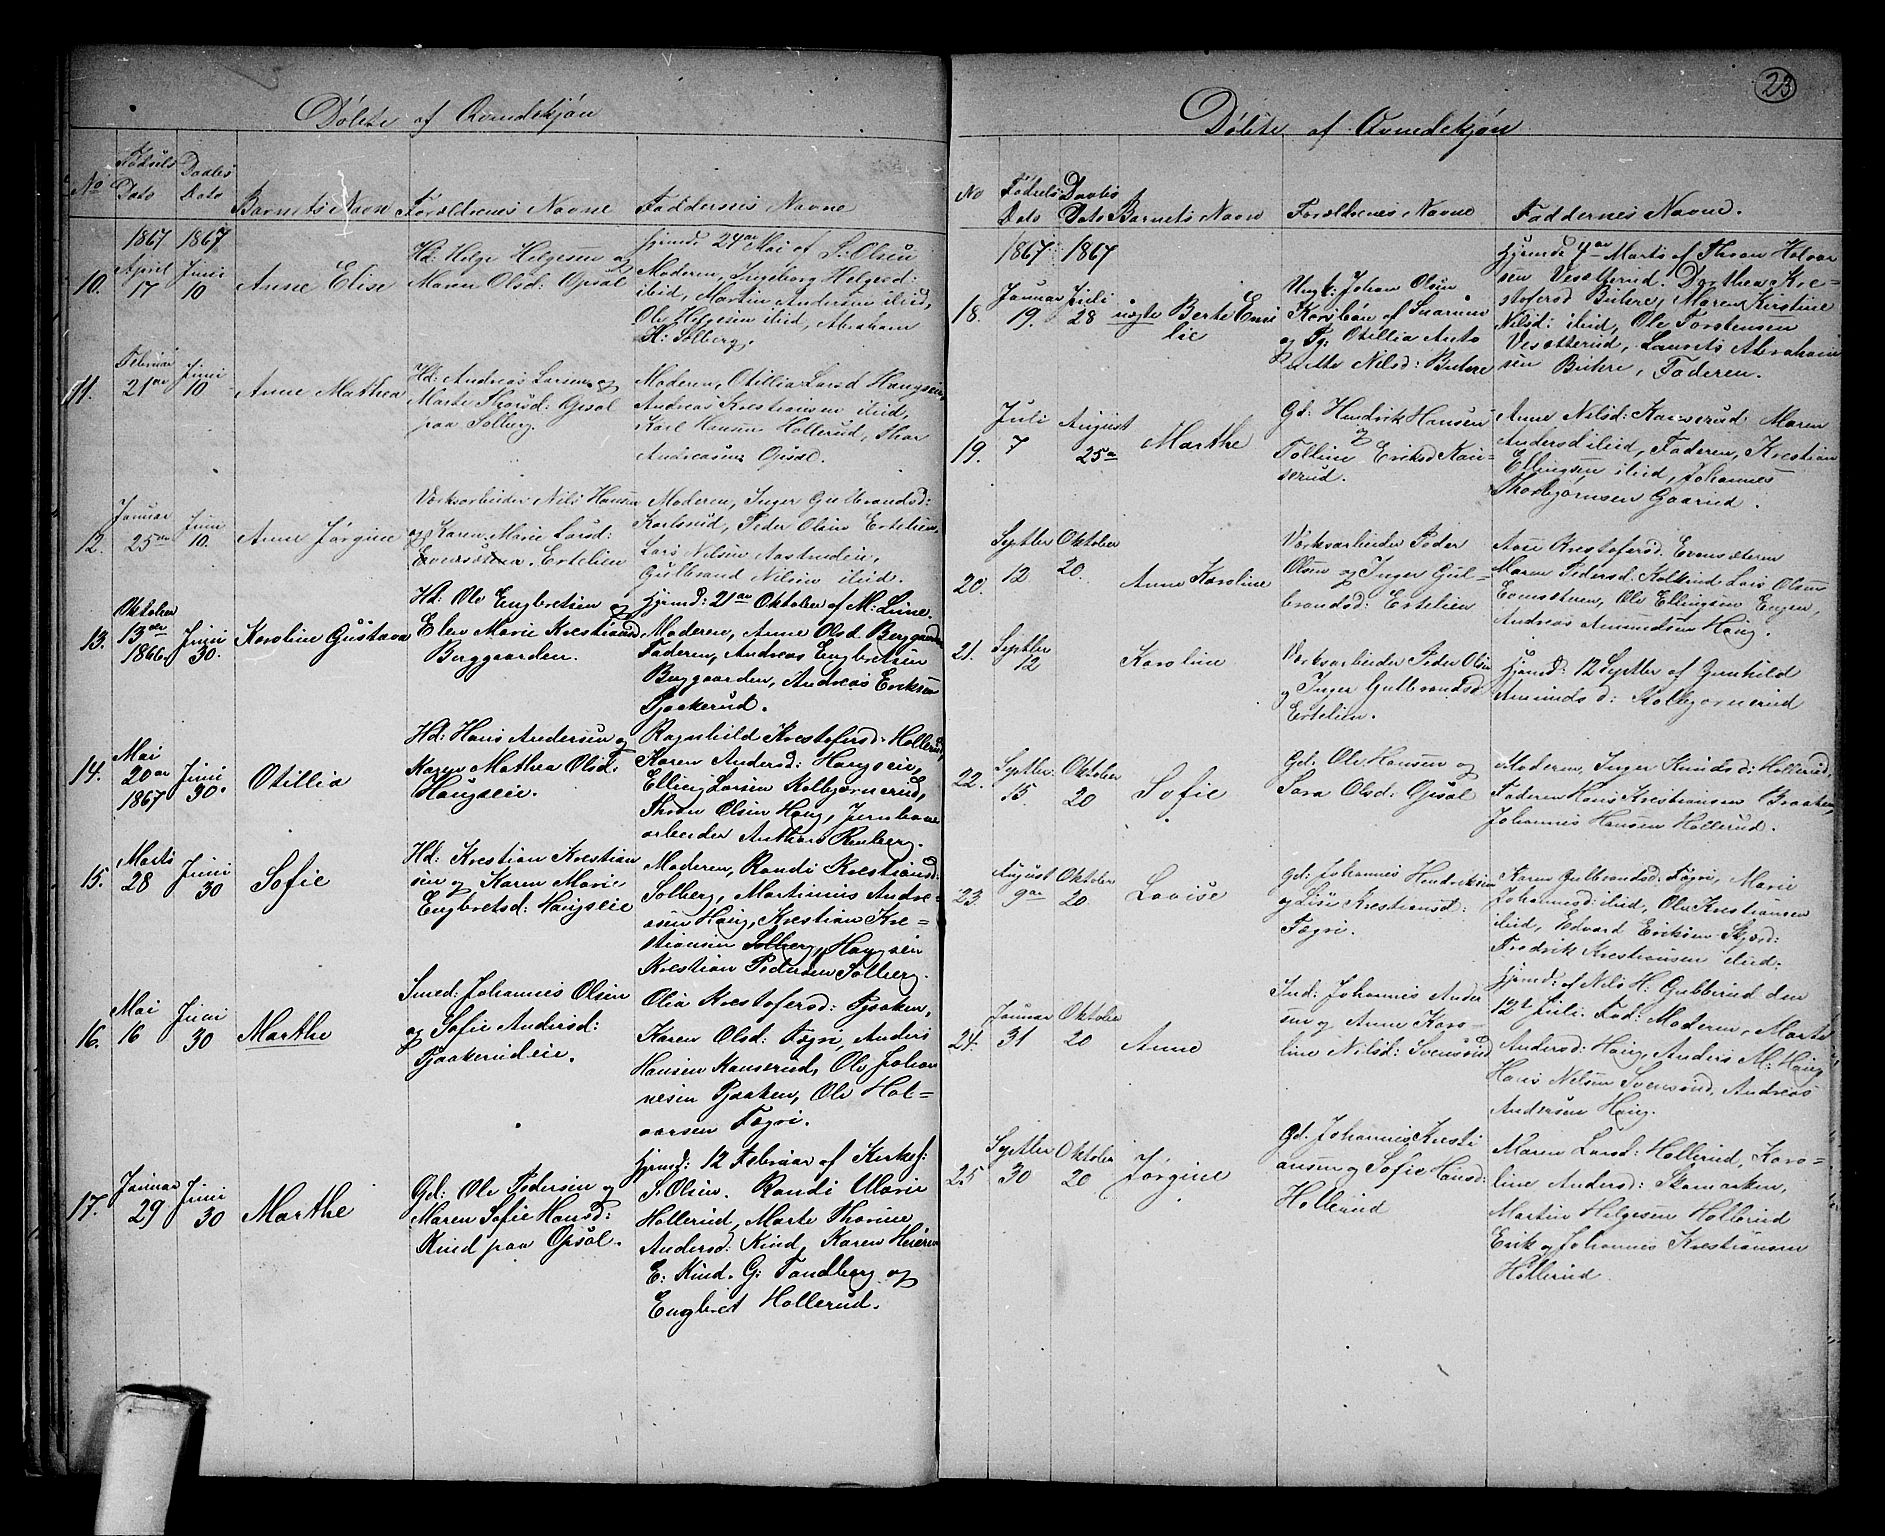 Døbte af Qvindekjøn
No
Fødsels
Dato
Daabs
Dato
Barnets Navn
Forældrenes Navne
Faddernes Navne
1867
1867
10.
April
17
Juni
10
Anne Elise
Hd: Helge Helgesen og
Maren Olsd: Opsal
Hjemd: 24de Mai af S: Olsen
Moderen, Ingeborg Helgesd:
ibid, Martin Andersen ibid,
Ole Helgesen ibid, Abraham
H: Solberg.
11.
Februar
21de
Juni
10
Anne Mathea
Hd: Andreas Larsen og
Marte Thorsd: Opsal
paa Solberg.
Moderen, Otillia Larsd Haugseie,
Andreas Krestiansen ibid,
Karl Hansen Hollerud, Thor
Andreasen Opsal.
12.
Januar
25de
Juni
10.
Anne Jørgine
Værksarbeider Nils Hansen
og Karen Marie Larsd:
Evensæteren. Ertelien
Moderen, Inger Gulbrandsd:
Karlsrud, Peder Olsen Ertelien,
Lars Nilsen Aastmdeie,
Gulbrand Nilsen ibid.
13.
Oktober
13de
1866
Juni
30.
Karoline Gustava
Hd: Ole Engbretsen og
Elen Marie Krestiansd
Berggaarden.
Hjemd: 21de Oktober af M: Lune.
Moderen, Anne Olsd Berggaarden
Faderen, Andreas Engbretsen
Berggaarden, Andreas Eriksen
Pjaakerud.
14.
Mai
20de
1867
Juni
30.
Otillia
Hd: Hans Andersen og
Karen Mathea Olsd:
Haugseie.
Ragnhild Krestofersd: Hollerud,
Karen Andersd: Haugseie,
Elling Larsen Kolbjørnerud,
Thron Olsen Haug, Jernbane
arbeider Anthon Renberg.
15.
Marts
28
Juni
30
Sofie
Hd: Krestian Krestian
sen og Karen Marie
Engbretsd: Haugseie
Moderen, Randi Krestiansd:
Solberg, Martinius Andre=
asen Haug, Krestian Kre=
stiansen Solberg, Haugseie
Krestian Pedersen Solberg.
16.
Mai
16
Juni
30
Marthe
Smed: Johannes Olsen
og Sofie Andersd:
Pjaakerudeie.
Olia Krestofersd: Pjaaken,
Karen Olsd: Fægri, Anders
Hansen Kanserud, Ole Johan
nesen Pjaaken, Ole Hal=
vorsen Fægri.
17.
Januar
29
Juni
30
Marthe
Gd: Ole Pedersen og
Maren Sofie Hansd:
Kind paa Opsal.
Hjemd: 12 Februar af Kirkes:
S: Olsen. Randi Marie
Hollerud, Marte Thorine
Andersd: Kind, Karen Helene
E: Kind. G: Tandberg og
Engbret Hollerud.
23
Døbte af Qvindekjøn
No
Fødsels
Dato
Daabs
Dato
Barnets Navn
Forældrenes Navne
Faddernes Navne.
1867
1867
18.
Januar
19.
Juli
28
uægte Berte Emi
lie
Ungk: Johan Olsen
Korsbøn af Snarum
og Pg: Otillia Anto
nette Nilsd: Buhre
Hjemd: 7de Marts af Thron Halvor
sen Vesetterud. Dorthea Kre=
stofersd Buhre, Maren Kirstine
Nilsd: ibid, Ole Torstensen
Vesetterud, Laurits Abraham
sen Buhre, Faderen.
19.
Juli
7
August
25de
Marthe
Gd: Hendrik Hansen
og
Tolline Eriksd Kan=
serud.
Anne Nilsd: Kanserud. Maren
Andersd ibid, Faderen, Krestian
Ellingsen ibid, Johannes
Thorbjørnsen Gaarud.
20.
Septber
12
Oktober
20.
Anne Karoline
Værksarbeider Peder
Olsen og Inger Gul=
brandsd: Ertelien
Aase Krestofersd. Evensæteren
Maren Pedersd: Kolkind Lars Olsen
Evensæteren, Ole Ellingsen Engen,
Andreas Amundsen Haug.
21.
Septber
12
Karoline
Værksarbeider Peder Olsen
og Inger Gulbrandsd
Ertelien.
Hjemd: 12 Septber af Gunhild
Amundsd: Kolbjørnsrud
22.
Septber
15.
Oktober
20
Sofie
Gd: Ole Hansen og
Sara Olsd: Opsal
Moderen, Inger Knudsd: Hollerud,
Faderen Hans Krestiansen Braaten,
Johannes Hansen Hollerud.
23.
August
9de
Oktober
20.
Lovise
Gd: Johannes Hendriksen
og Lise Krestiansd:
Fægri.
Karen Gulbrandsd: Fægri, Marie
Johannesd: ibid, Ole Krestiansen
ibid, Edvard Eriksen Skjærd:
Fredrik Krestiansen ibid.
24.
Januar
31
Oktober
20
Anne
Ind: Johannes Ander
sen og Anne Karo=
line Nilsd: Svensrud
Hjemd: af Nils H: Gubberud den
12te Juli. Fad: Moderen, Marte
Andersd: Haug, Anders M: Haug
Hans Nilsen Svensrud, Andreas
Andersen Haug.
25
Septber
30
Oktober
20
Jørgine
Gd. Johannes Kresti
ansen og Sofie Hansd:
Hollerud
Maren Larsd: Hollerud, Karo=
line Andersd: Skamarken,
Martin Helgesen Hollerud
Erik og Johannes Krestiansen
Hollerud.